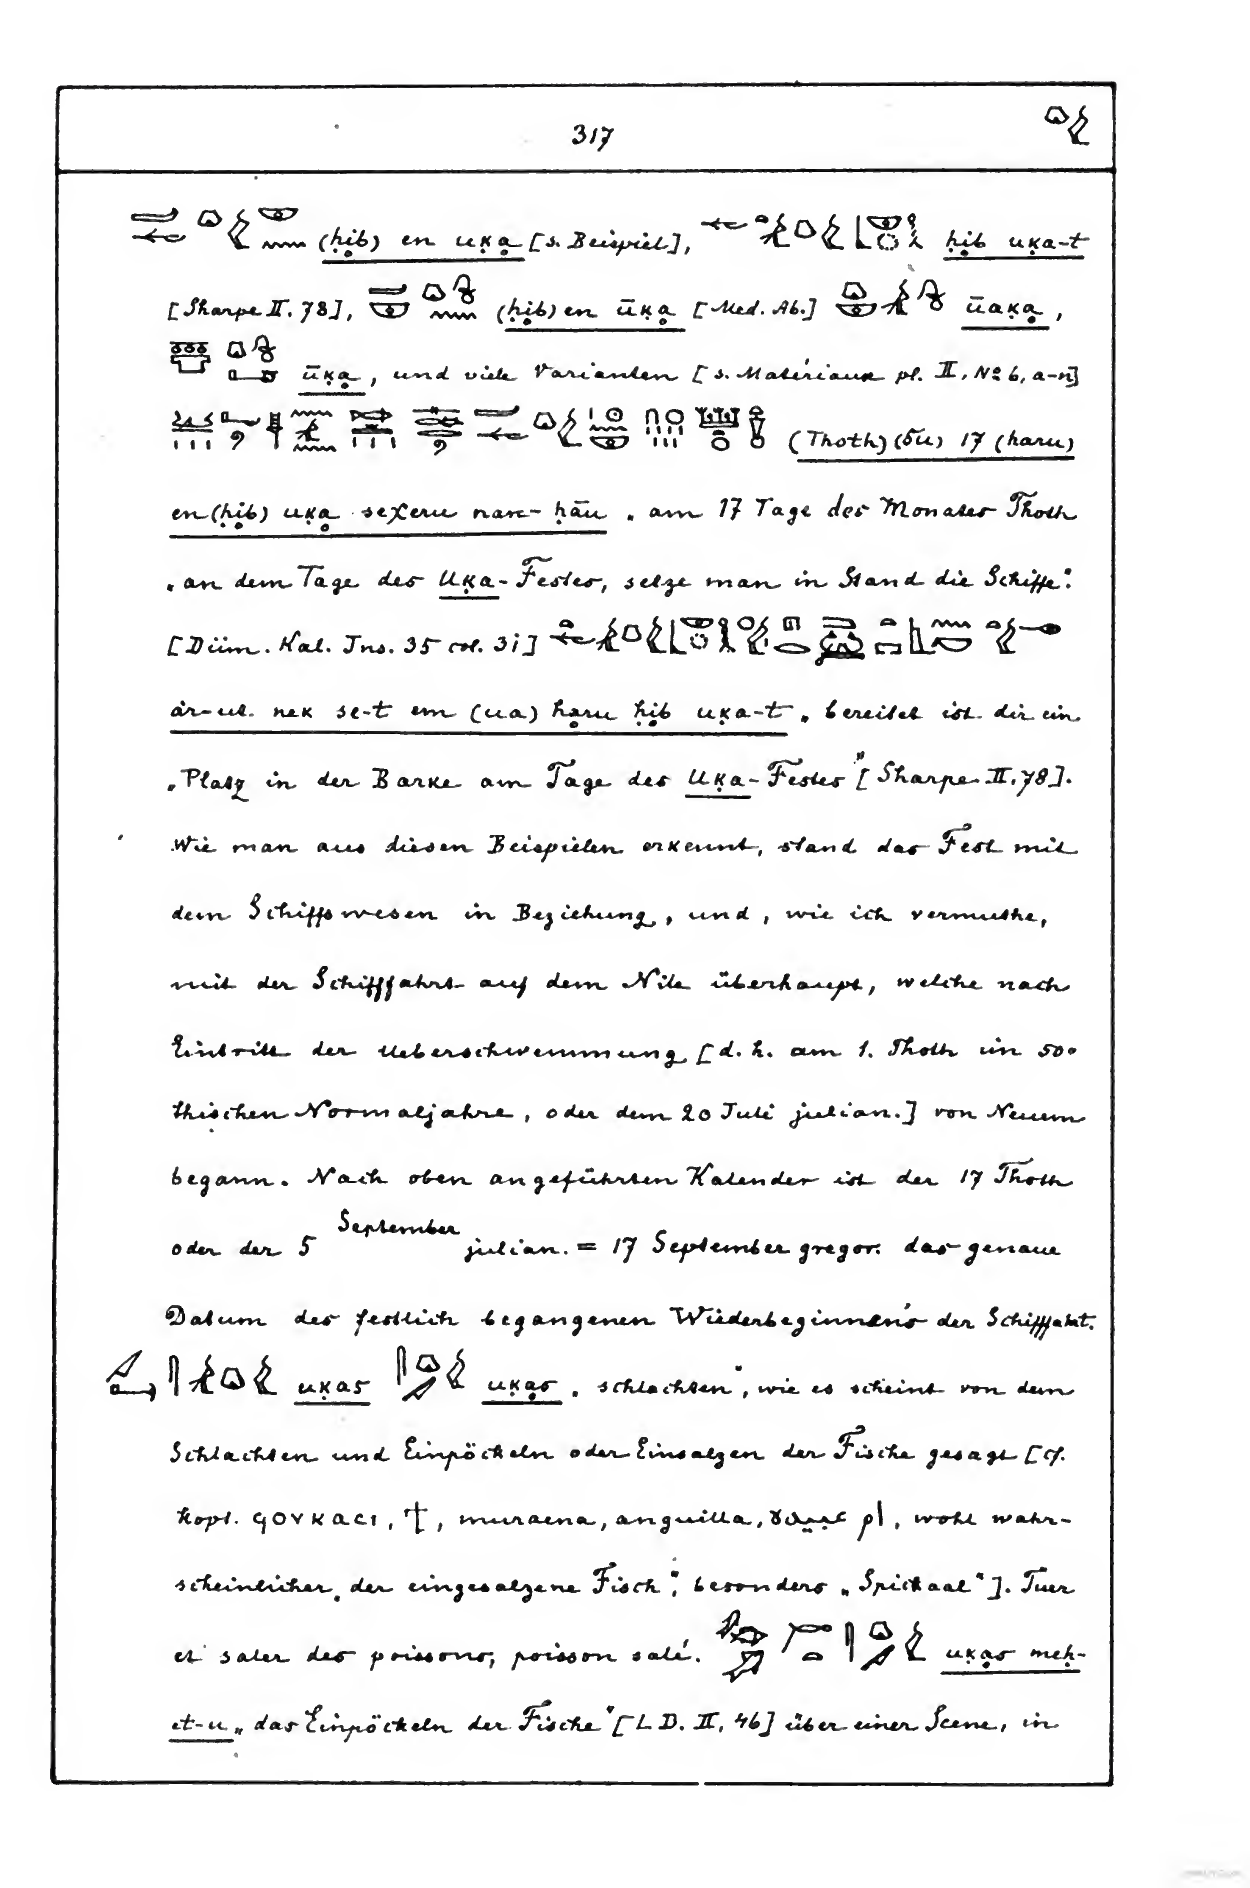 317
(ḥib) en uḳa [s. Beispiel], ḥib uḳa-t
[Sharpe II. 78], (ḥib) en ūḳa [Med. Ab.] ūaḳa,
ūḳa, und viele Varianten [s. Matériaux pl. II, No 6, a-n]
(Thoth) (su) 17 (haru)
en (ḥib) uḳa seχeru nare-ḥāu „am 17 Tage des Monates Thoth
„an dem Tage des Uḳa-Festes, setze man in Stand die Schiffe“.
[Düm. Kal. Ins. 35 col. 31]
ȧr-ut. nek se-t em (ua) haru ḥib uḳa-t „bereitet ist dir ein
„Platz in der Barke am Tage des Uḳa-Festes“ [Sharpe II. 78].
Wie man aus diesen Beispielen erkennt, stand das Fest mit
dem Schiffswesen in Beziehung, und, wie ich vermuthe,
mit der Schifffahrt auf dem Nile überhaupt, welche nach
Eintritt der Ueberschwemmung [d. h. am 1. Thoth im so-
thischen Normaljahre, oder dem 20 Juli julian.] von Neuem
begann. Nach oben angeführten Kalender ist der 17 Thoth
oder der 5 September julian. = 17 September gregor. das genaue
Datum des festlich begangenen Wiederbeginnens der Schifffahrt.
uḳas uḳas „schlachten“, wie es scheint von dem
Schlachten und Einpöckeln oder Einsalzen der Fische gesagt [cf.
kopt. ϥⲟⲩⲕⲁⲥⲓ, ϯ, muraena, anguilla, wohl wahr-
scheinlicher „der eingesalzene Fisch“, besonders „Spickaal“]. Tuer
et saler des poissons, poisson salé. uḳas meḥ-
et-u „das Einpöckeln der Fische“ [L D. II, 46] über einer Scene, in